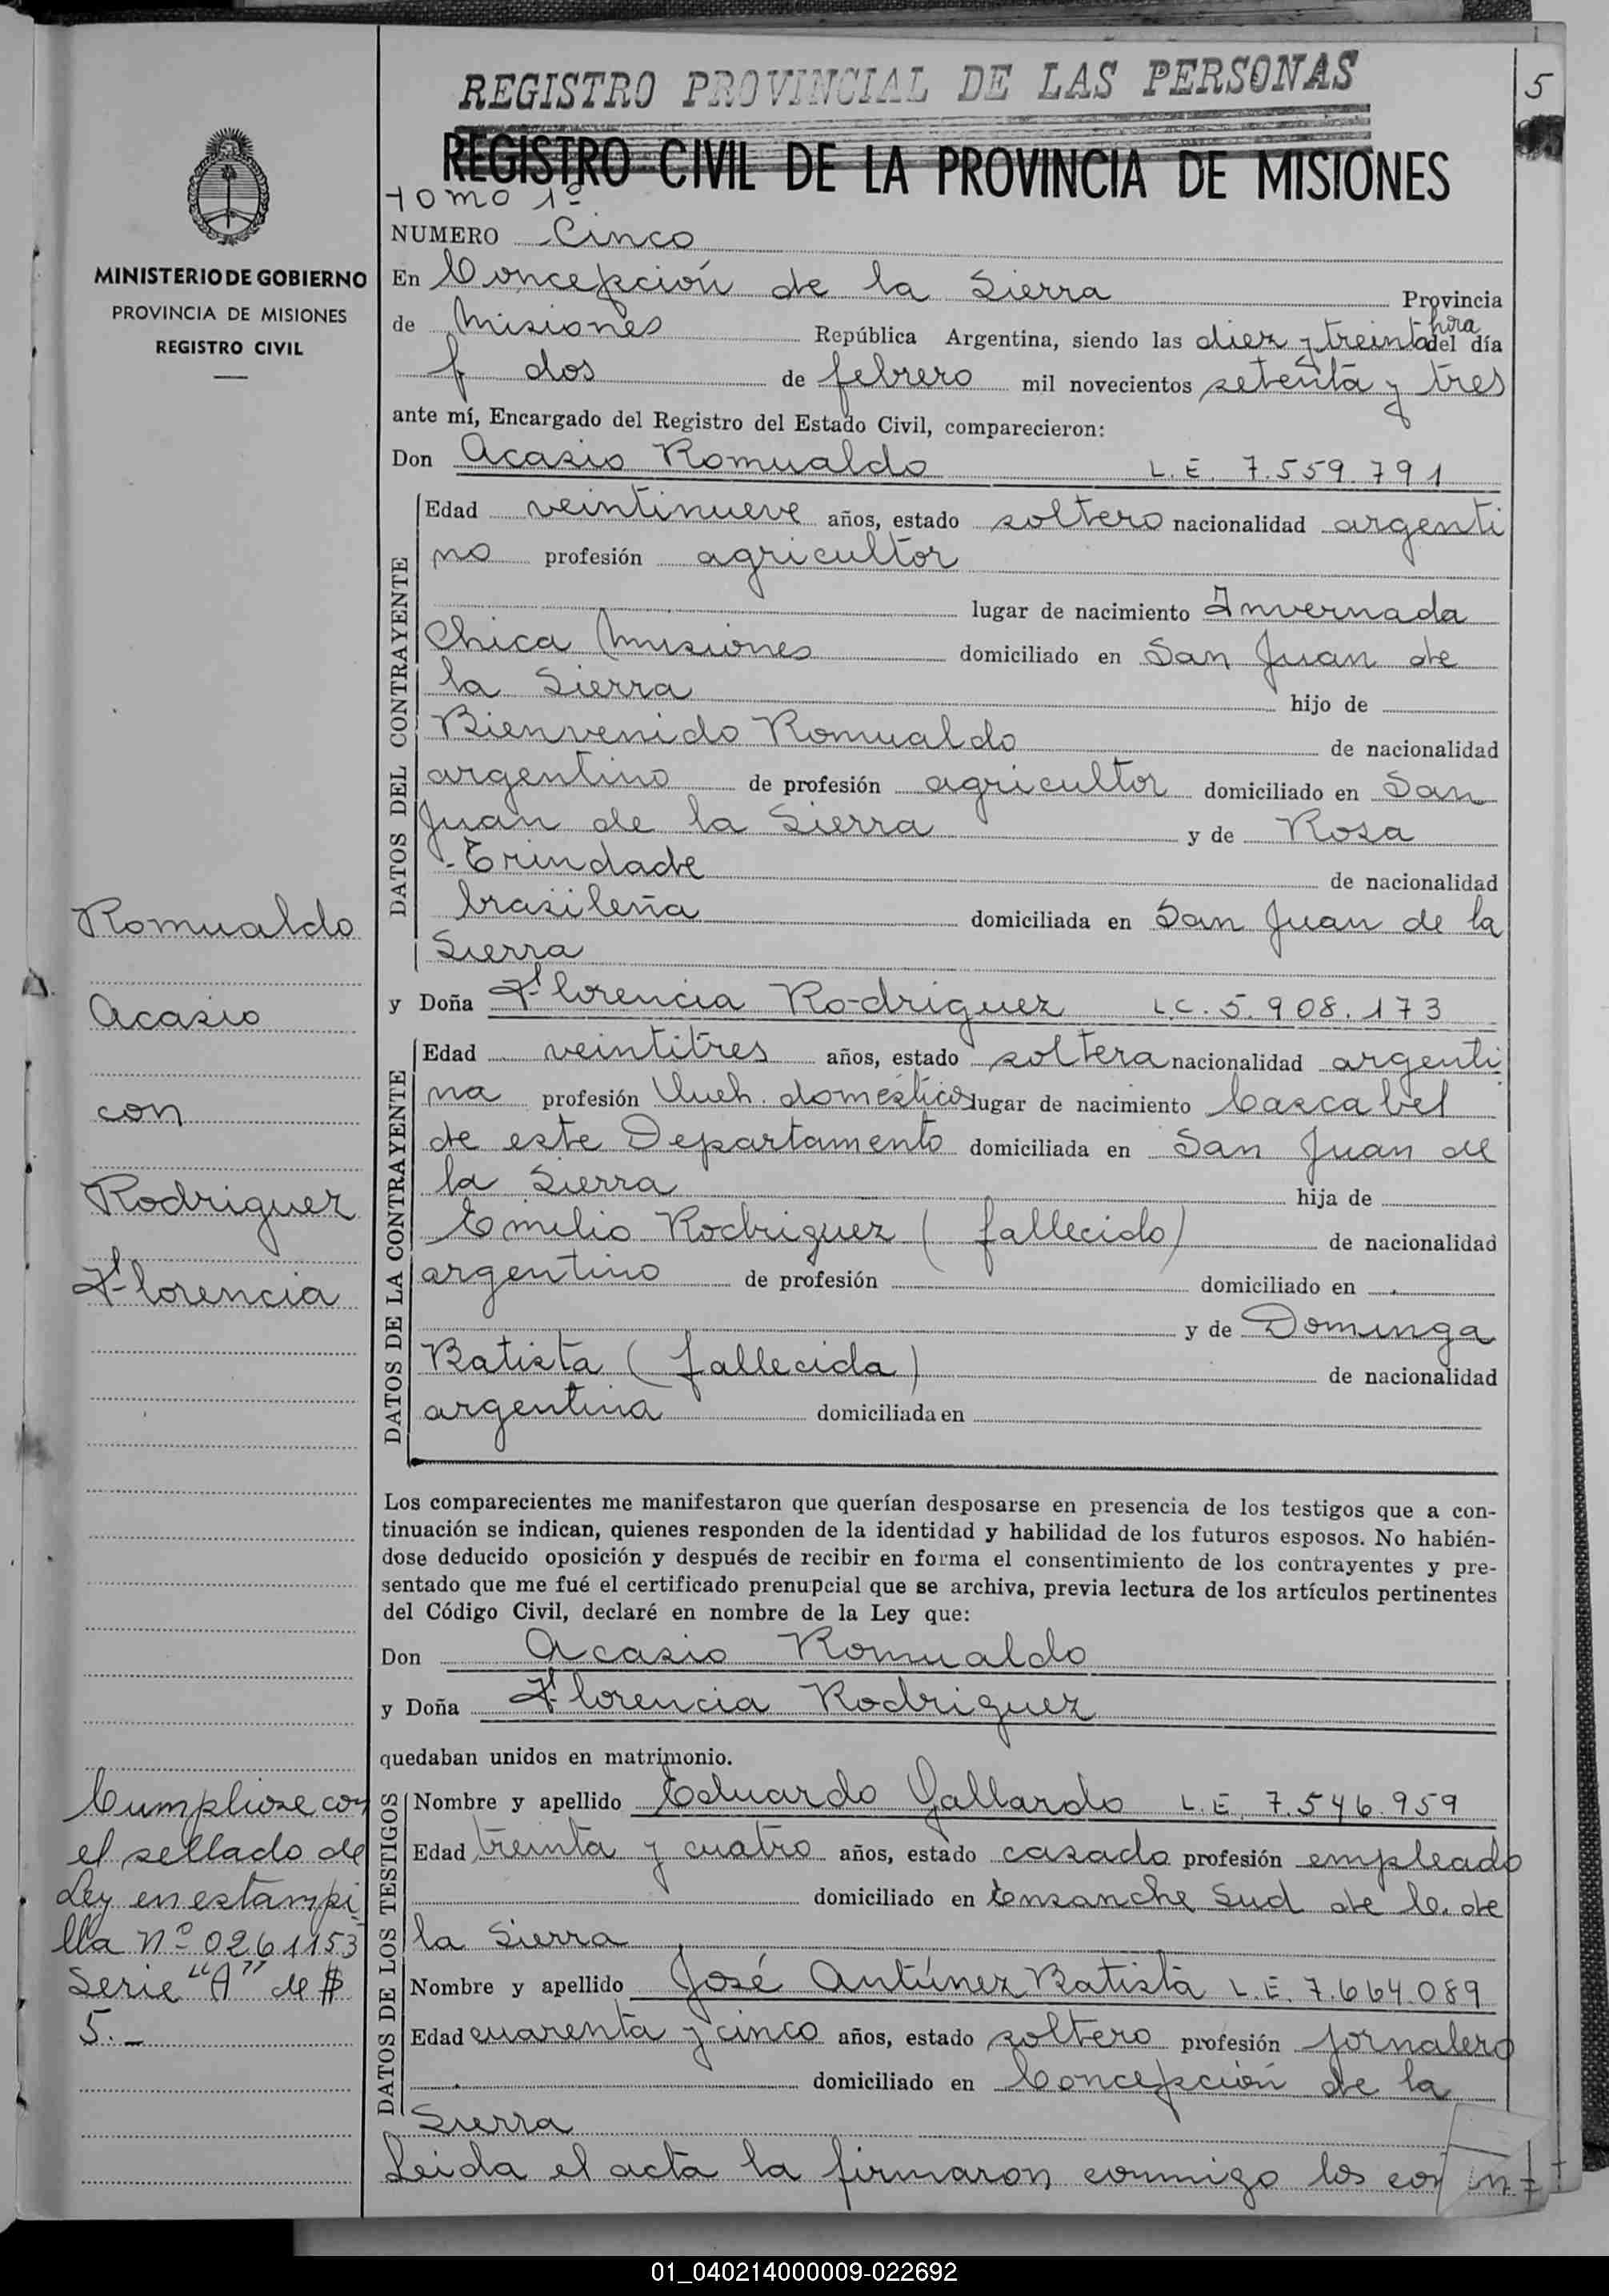 REGISTRO PROVINCIAL DE LAS PERSONAS
5
REGISTRO CIVIL DE LA PROVINCIA DE MISIONES
Tomo 1º
NUMERO Cinco
MINISTERIO DE GOBIERNO
PROVINCIA DE MISIONES
REGISTRO CIVIL
En Concepción de la Sierra Provincia
de Misiones República Argentina, siendo las diez y treinta hora del día
dos de febrero mil novecientos setenta y tres
ante mí, Encargado del Registro del Estado Civil, comparecieron:
Don Acasio Romualdo L.E. 7.559.791
DATOS DEL CONTRAYENTE
Edad veintinueve años, estado soltero nacionalidad argenti
no profesión agricultor
lugar de nacimiento Invernada
Chica Misiones domiciliado en San Juan de
la Sierra hijo de
Bienvenido Romualdo de nacionalidad
argentino de profesión agricultor domiciliado en San
Juan de la Sierra y de Rosa
Trindade de nacionalidad
brasileña domiciliada en San Juan de la
Sierra
y Doña Florencia Rodriguez L.C. 5.908.173
DATOS DE LA CONTRAYENTE
Edad veintitres años, estado soltera nacionalidad argenti
na profesión Queh. domésticos lugar de nacimiento Cascabel
de este Departamento domiciliada en San Juan de
la Sierra hija de
Emilio Rodriguez (fallecido) de nacionalidad
argentino de profesión domiciliado en
y de Dominga
Batista (fallecida) de nacionalidad
argentina domiciliada en
Los comparecientes me manifestaron que querían desposarse en presencia de los testigos que a con-
tinuación se indican, quienes responden de la identidad y habilidad de los futuros esposos. No habién-
dose deducido oposición y después de recibir en forma el consentimiento de los contrayentes y pre-
sentado que me fué el certificado prenupcial que se archiva, previa lectura de los artículos pertinentes
del Código Civil, declaré en nombre de la Ley que:
Don Acasio Romualdo
y Doña Florencia Rodriguez
quedaban unidos en matrimonio.
DATOS DE LOS TESTIGOS
Nombre y apellido Eduardo Gallardo L.E. 7.546.959
Edad treinta y cuatro años, estado casado profesión empleado
domiciliado en Ensanche Sud de C. de
la Sierra
Nombre y apellido José Antúnez Batista L.E. 7.664.089
Edad cuarenta y cinco años, estado soltero profesión jornalero
domiciliado en Concepción de la
Sierra
Leida el acta la firmaron conmigo los con
Romualdo
Acasio
con
Rodriguez
Florencia
Cumpliose con
el sellado de
Ley en estampi
lla Nº 0261153
Serie "A" de $
5.-
01_040214000009-022692